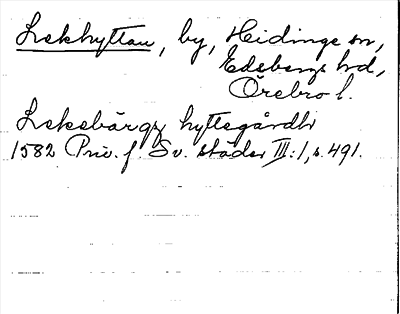 Lekhyttan, by, Hidinge sn,
Edsbergs hd,
Örebro l.
Leksbärgz hyttegårdh
1582 Priv. f. Sv. städer III:1, s. 491.